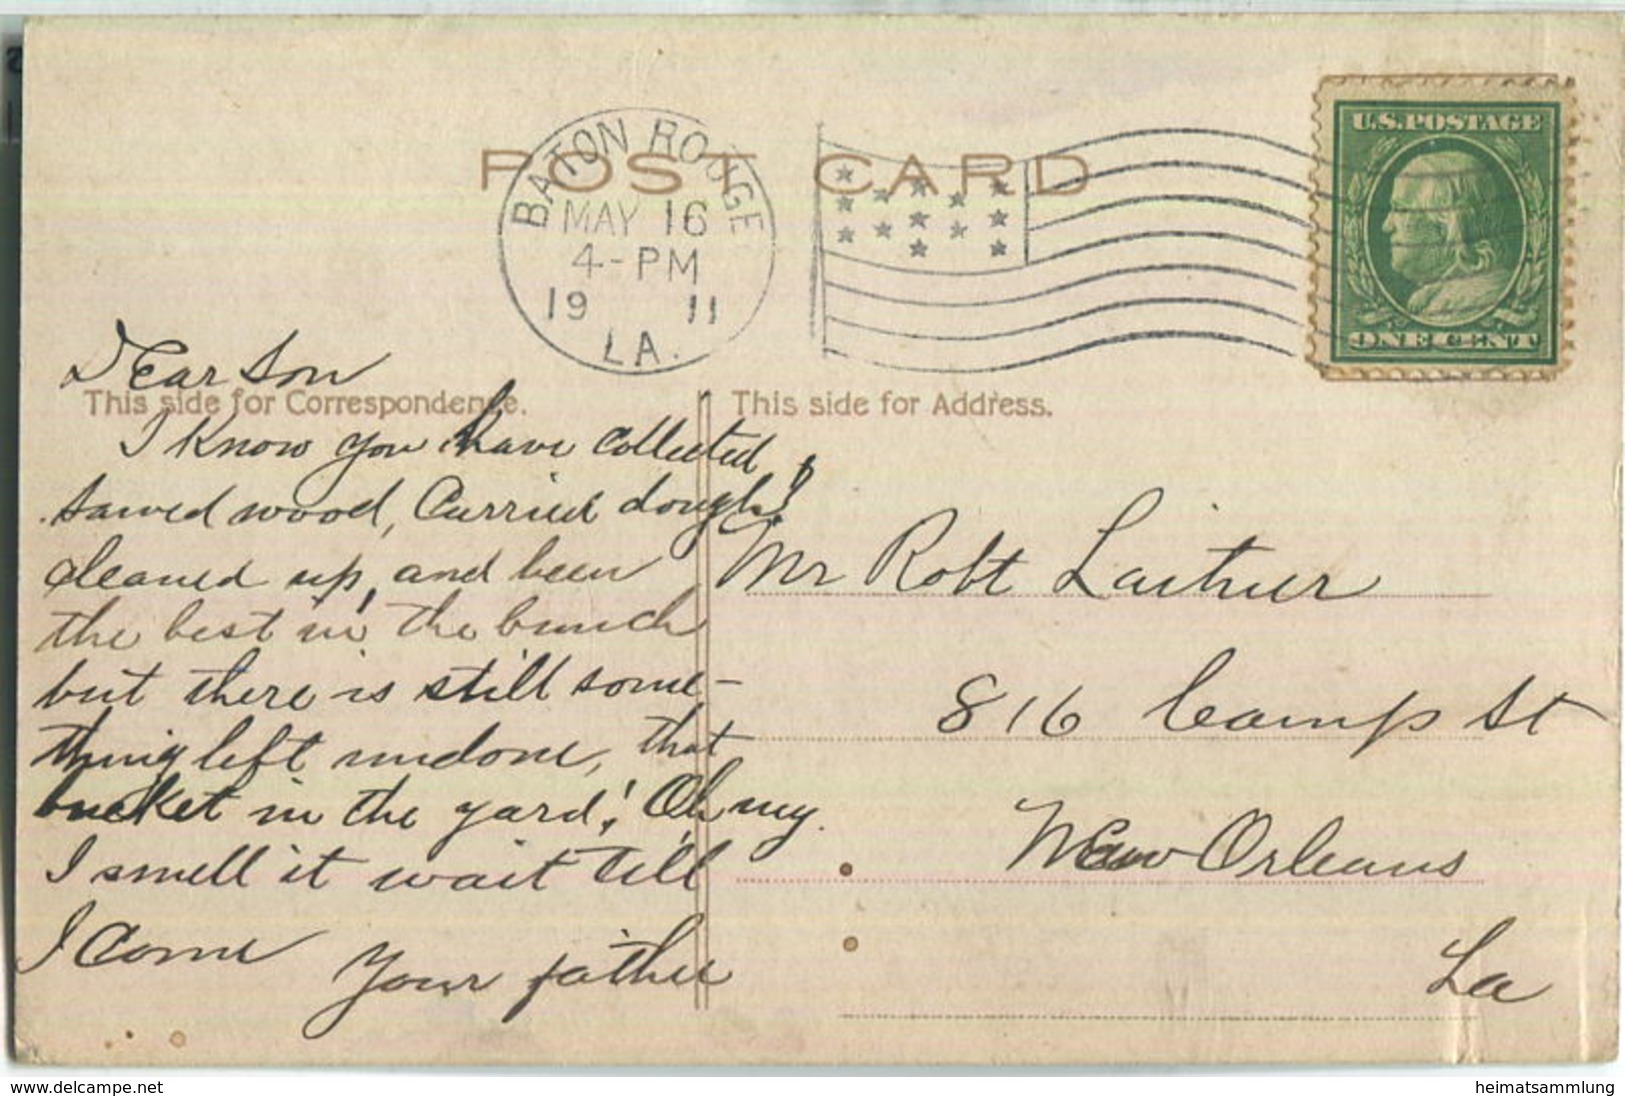 POST CARD
BATON ROUGE
MAY 16
4-PM
19 11
LA.
U.S.POSTAGE
ONE CENT
This side for Correspondence.
This side for Address.
Dear Son
I Know you have collected
sawed wood, Carried dough!
cleaned up, and been
the best in the bunch
but there is still some-
thing left undone, that
bucket in the yard! Oh my.
I smell it wait till
I come
Your father
Mr Robt Laitner
816 Camp St
New Orleans
La
www.delcampe.net
heimatsammlung